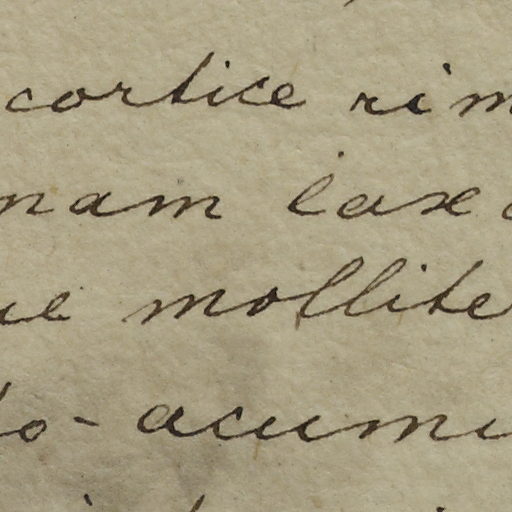 cortice rim
nam laxe
ue mollite
to-acumi